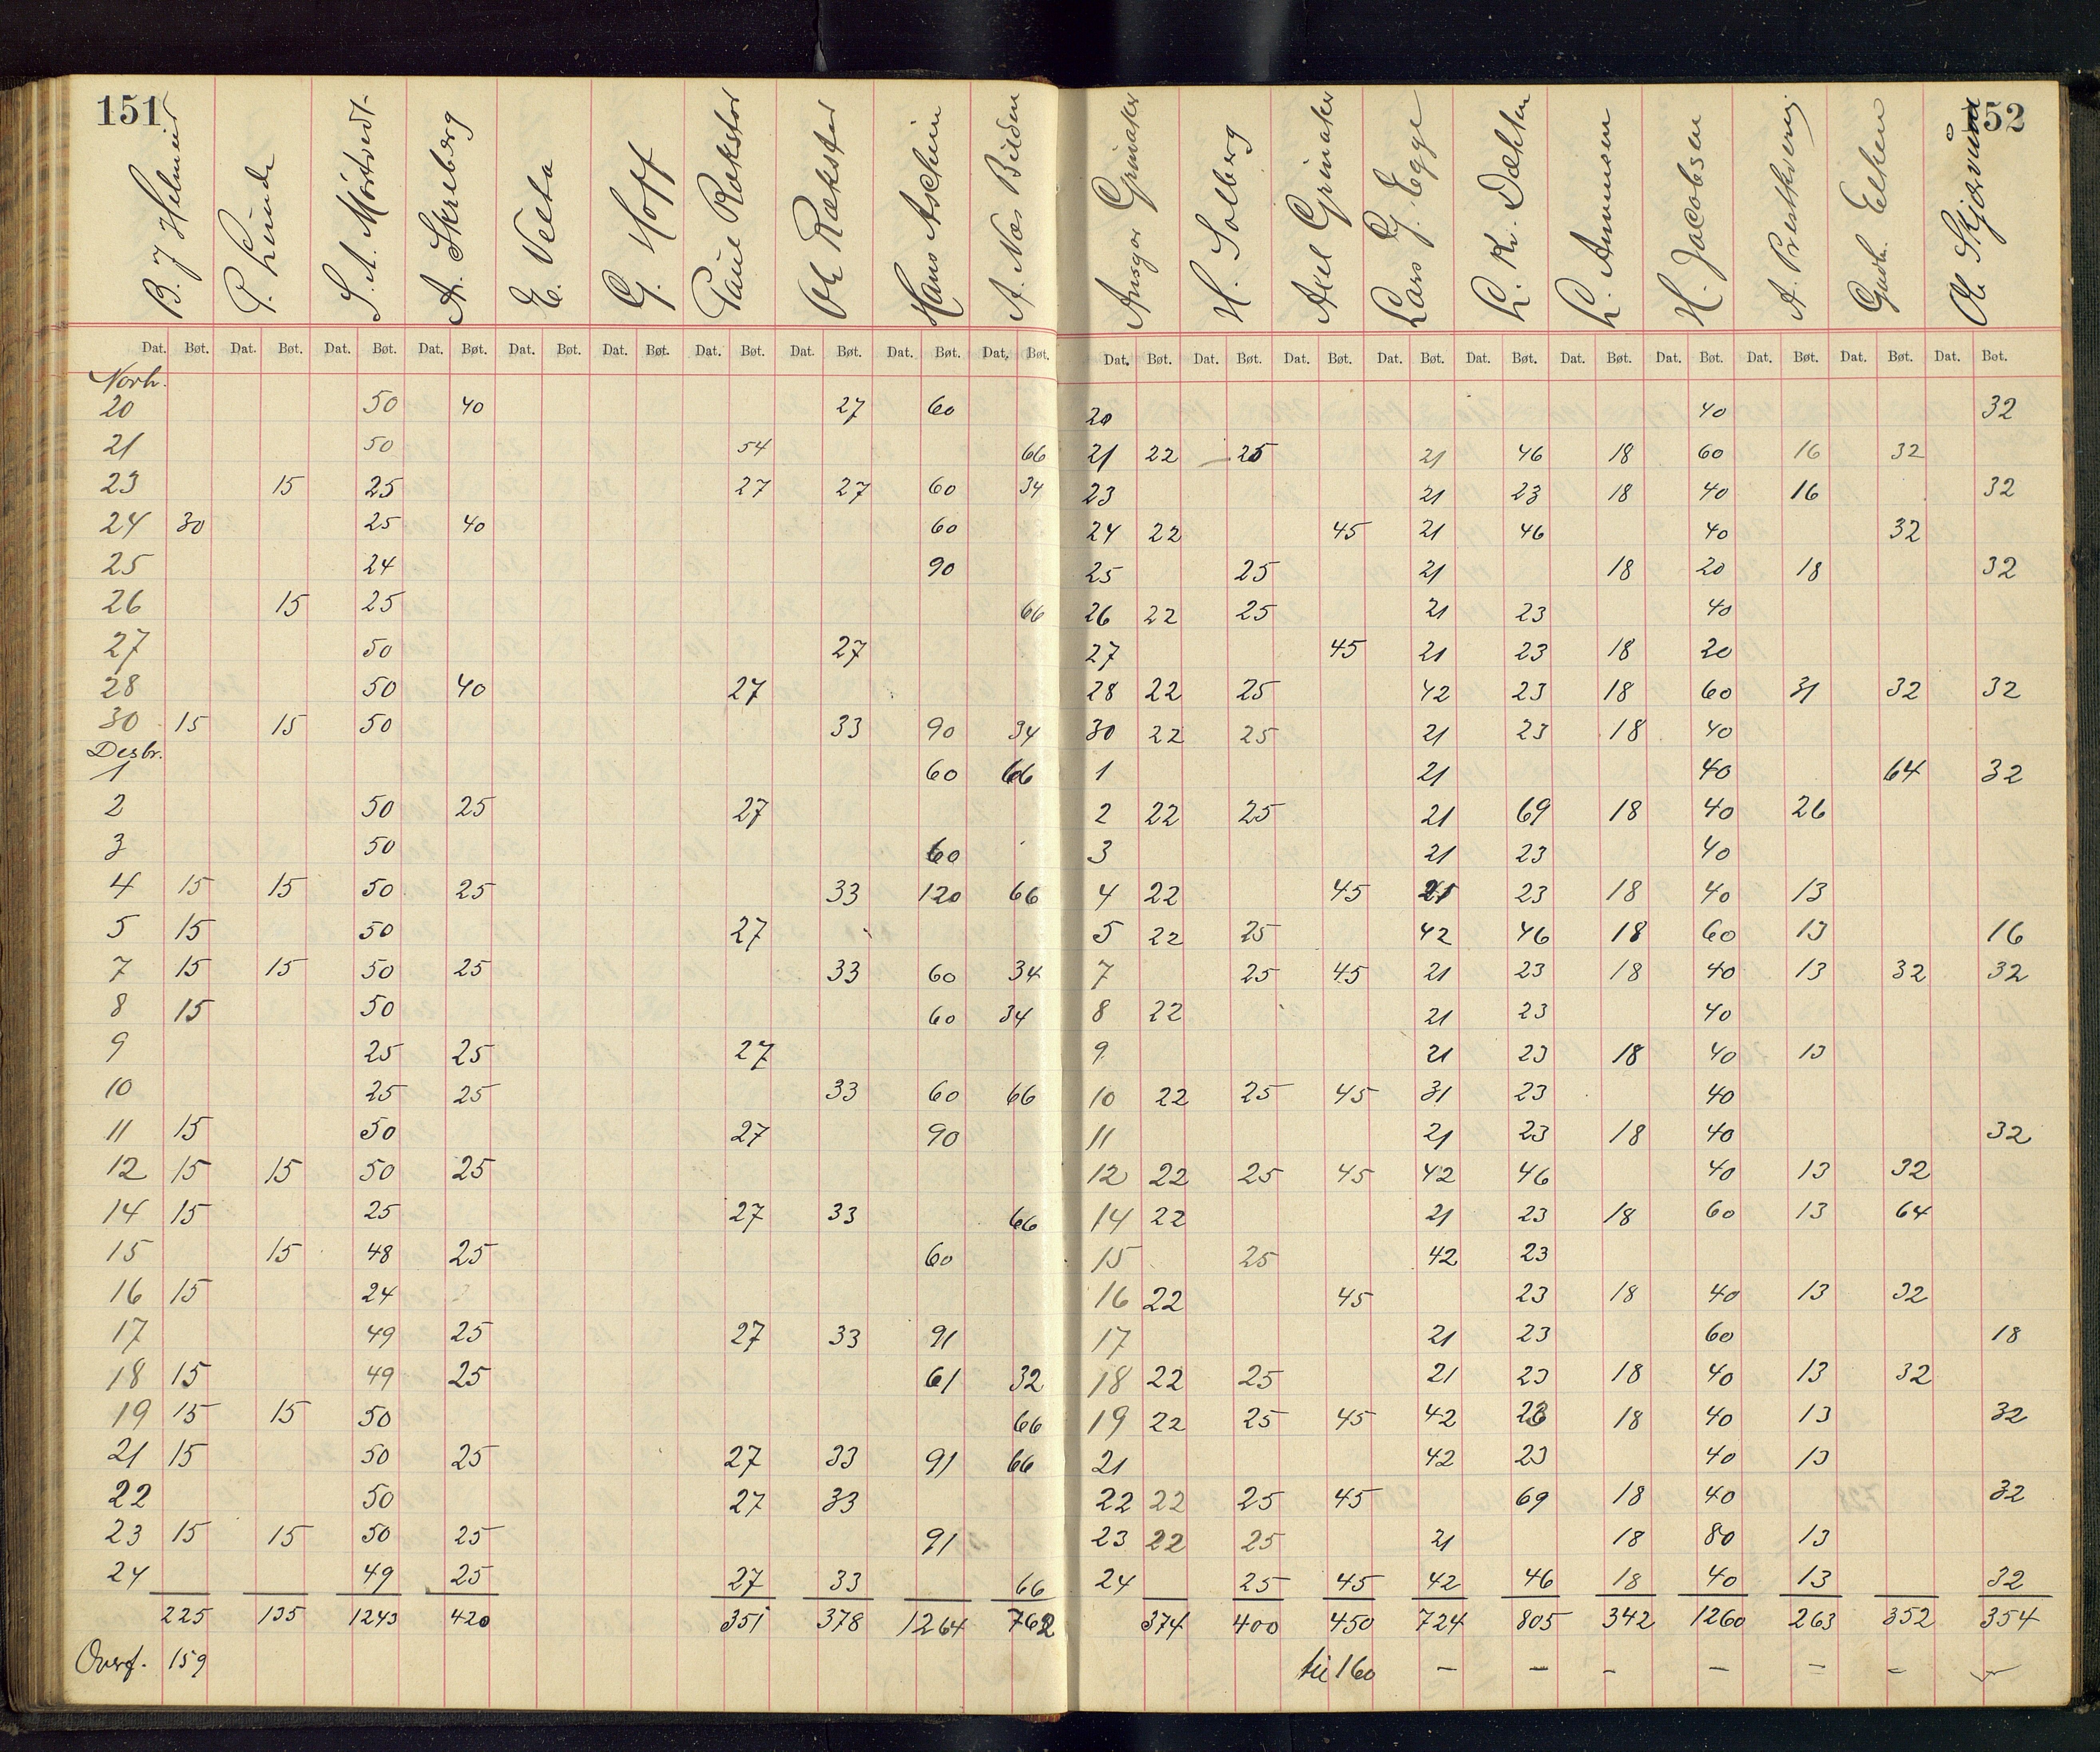 151 52
B. J Helmeid P. Lunde S. A. Mørtvedt A. Skreberg E. Velta G. Hoff Paul Rækstad Ole Rækstad Hans Aschim A. Næs Bilden Ansgar Grimaker H. Solberg Axel Grimaker Lars G. Egge L. Kr. Dæhlen L. Amunsen H. Jacobsen A. Prestkvern Gudb. Elken Ole Skjervum
Dat. Bøt. Dat. Bøt. Dat. Bøt. Dat. Bøt. Dat. Bøt. Dat. Bøt. Dat. Bøt. Dat. Bøt. Dat. Bøt. Dat. Bøt. Dat. Bøt. Dat. Bøt. Dat. Bøt. Dat. Bøt. Dat. Bøt. Dat. Bøt. Dat. Bøt. Dat. Bøt. Dat. Bøt. Dat. Bøt.
Novb.
20 50 40 27 60 20 40 32
21 50 54 66 21 22 25 21 46 18 60 16 32
23 15 25 27 27 60 34 23 21 23 18 40 16 32
24 30 25 40 60 24 22 45 21 46 40 32
25 24 90 25 25 21 18 20 18 32
26 15 25 66 26 22 25 21 23 40
27 50 27 27 45 21 23 18 20
28 50 40 27 28 22 25 42 23 18 60 31 32 32
30 15 15 50 33 90 34 30 22 25 21 23 18 40
Desbr.
1 60 66 1 21 40 64 32
2 50 25 27 2 22 25 21 69 18 40 26
3 50 60 3 21 23 40
4 15 15 50 25 33 120 66 4 22 45 21 23 18 40 13
5 15 50 27 5 22 25 42 46 18 60 13 16
7 15 15 50 25 33 60 34 7 25 45 21 23 18 40 13 32 32
8 15 50 60 34 8 22 21 23 40
9 25 25 27 9 21 23 18 40 13
10 25 25 33 60 66 10 22 25 45 31 23 40
11 15 50 27 90 11 21 23 18 40 32
12 15 15 50 25 12 22 25 45 42 46 40 13 32
14 15 25 27 33 66 14 22 21 23 18 60 13 64
15 15 48 25 60 15 25 42 23
16 15 24 16 22 45 23 18 40 13 32
17 49 25 27 33 91 17 21 23 60 18
18 15 49 25 61 32 18 22 25 21 23 18 40 13 32
19 15 15 50 66 19 22 25 45 42 23 18 40 13 32
21 15 50 25 27 33 91 66 21 42 23 40 13
22 50 27 33 22 22 25 45 69 18 40 32
23 15 15 50 25 91 23 22 25 21 18 80 13
24 49 25 27 33 66 24 25 45 42 46 18 40 13 32
225 135 1243 420 351 378 1264 762 374 400 450 724 805 342 1260 263 352 354
Overf. 159 til 160 – – – – – – –